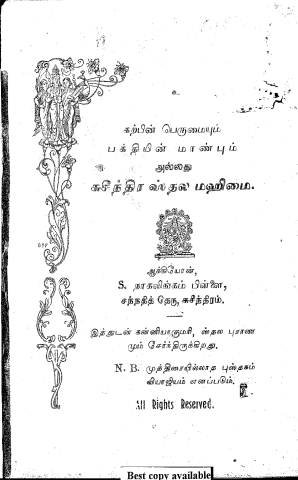 உ
கற்பின் பெருமையும்
பக்தியின் மாண்பும்
அல்லது
சுசீந்திர ஸ்தல மஹிமை.
ஆக்கியோன்,
S. நாகலிங்கம் பிள்ளை,
சந்நதித் தெரு, சுசீந்திரம்.
இத்துடன் கன்னியாகுமரி, ஸ்தல புராண
மும் சேர்ந்திருக்கிறது.
N. B. முத்திரையில்லாத புஸ்தகம்
வியாஜியம் எனப்படும்.
All Rights Reserved.
Best copy available